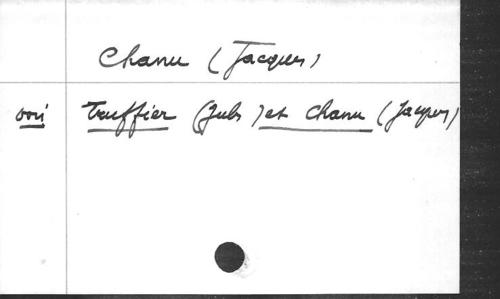 Chanu (Jacques)
voir Truffier (Jules) et Chanu (Jacques)